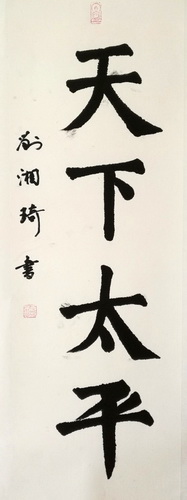 天下太平
劉湘琦書